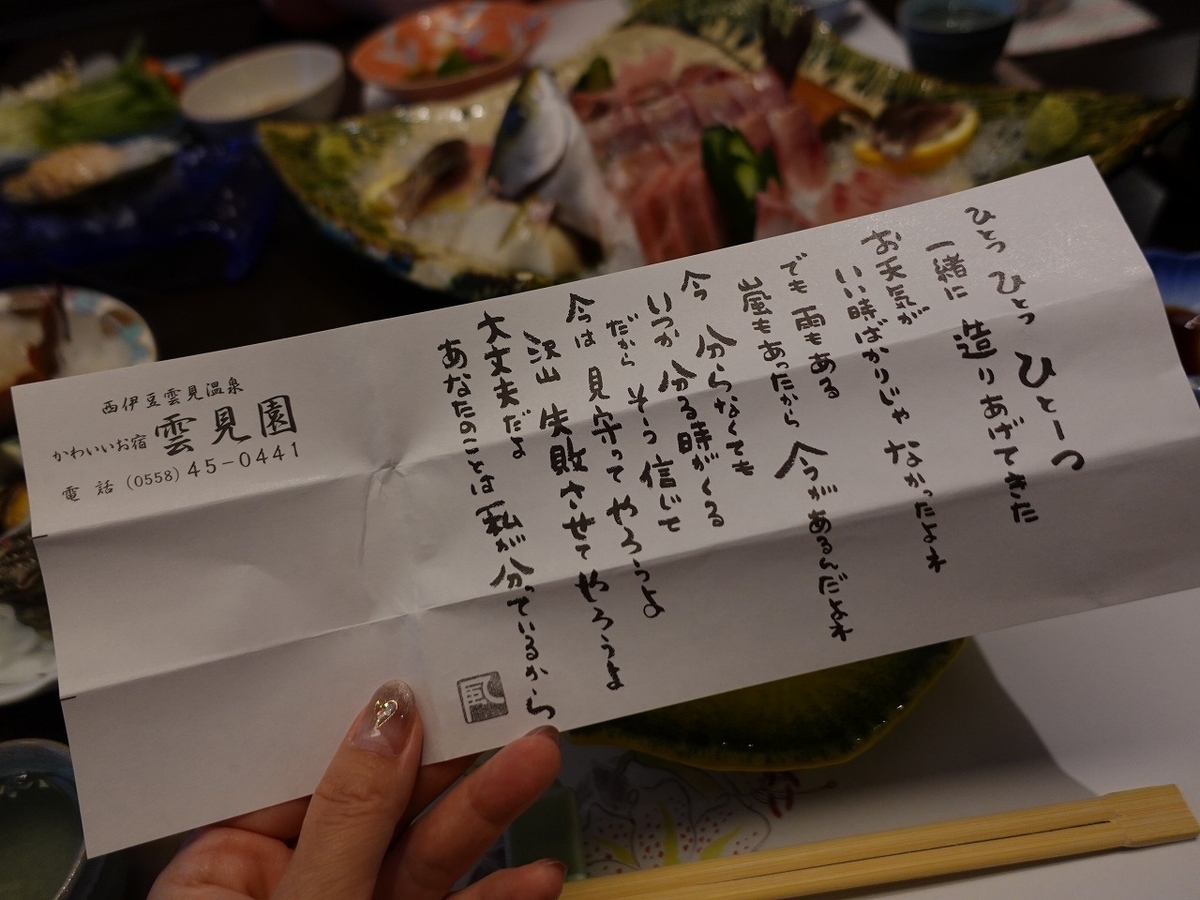 ひとつ ひとつ ひとーつ
一緒に 造りあげてきた
お天気が
いい時ばかりじゃ なかったよネ
でも 雨もある
嵐もあったから 今があるんだよネ
今 分らなくても
いつか 分る時がくる
だから そう 信じて
今は 見守って やろうよ
沢山 失敗させて やろうよ
大丈夫だよ
あなたのことは 私が 分っているから
西伊豆雲見温泉
かわいいお宿 雲見園
電話 (0558) 45-0441